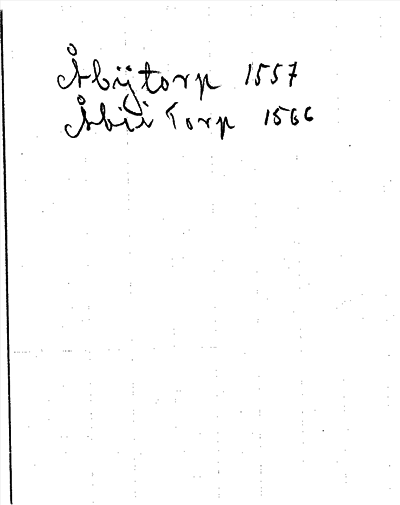 Åbÿtorp 1557
Åbii Torp 1566